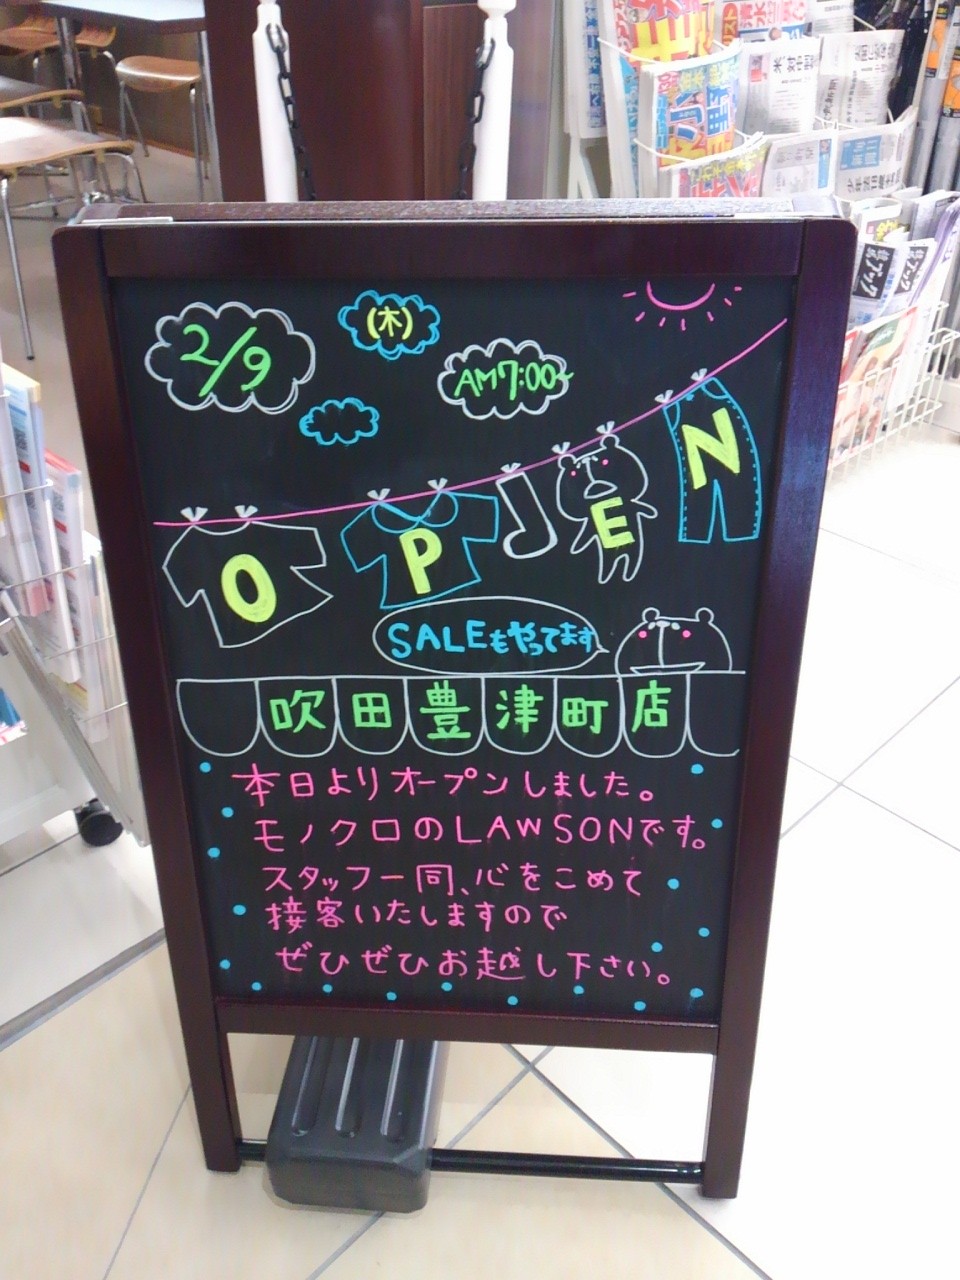 2/9
(木)
AM7:00~
OPEN
SALEもやってます
吹田豊津町店
本日よりオープンしました。
モノクロのLAWSONです。
スタッフ一同、心をこめて
接客いたしますので
ぜひぜひお越し下さい。